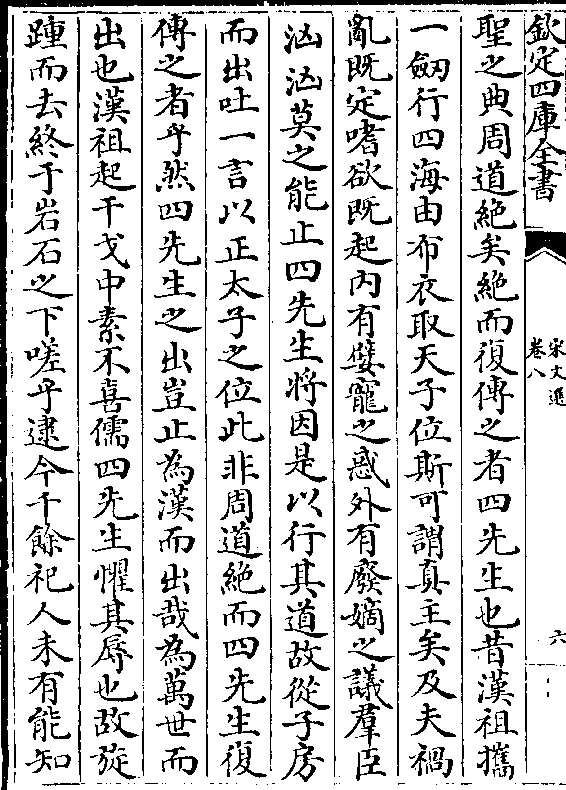 欽定四庫全書
宋文選
卷八
六
聖之典周道絶矣絶而復傳之者四先生也昔漢祖攜
一劒行四海由布衣取天子位斯可謂真主矣及夫禍
亂既定嗜欲既起内有嬖寵之惑外有廢嫡之議羣臣
洶洶莫之能止四先生將因是以行其道故從子房
而出吐一言以正太子之位此非周道絶而四先生復
傳之者乎然四先生之出豈止為漢而出哉為萬世而
出也漢祖起干戈中素不喜儒四先生懼其辱也故旋
踵而去終于岩石之下嗟乎逮今千餘祀人未有能知